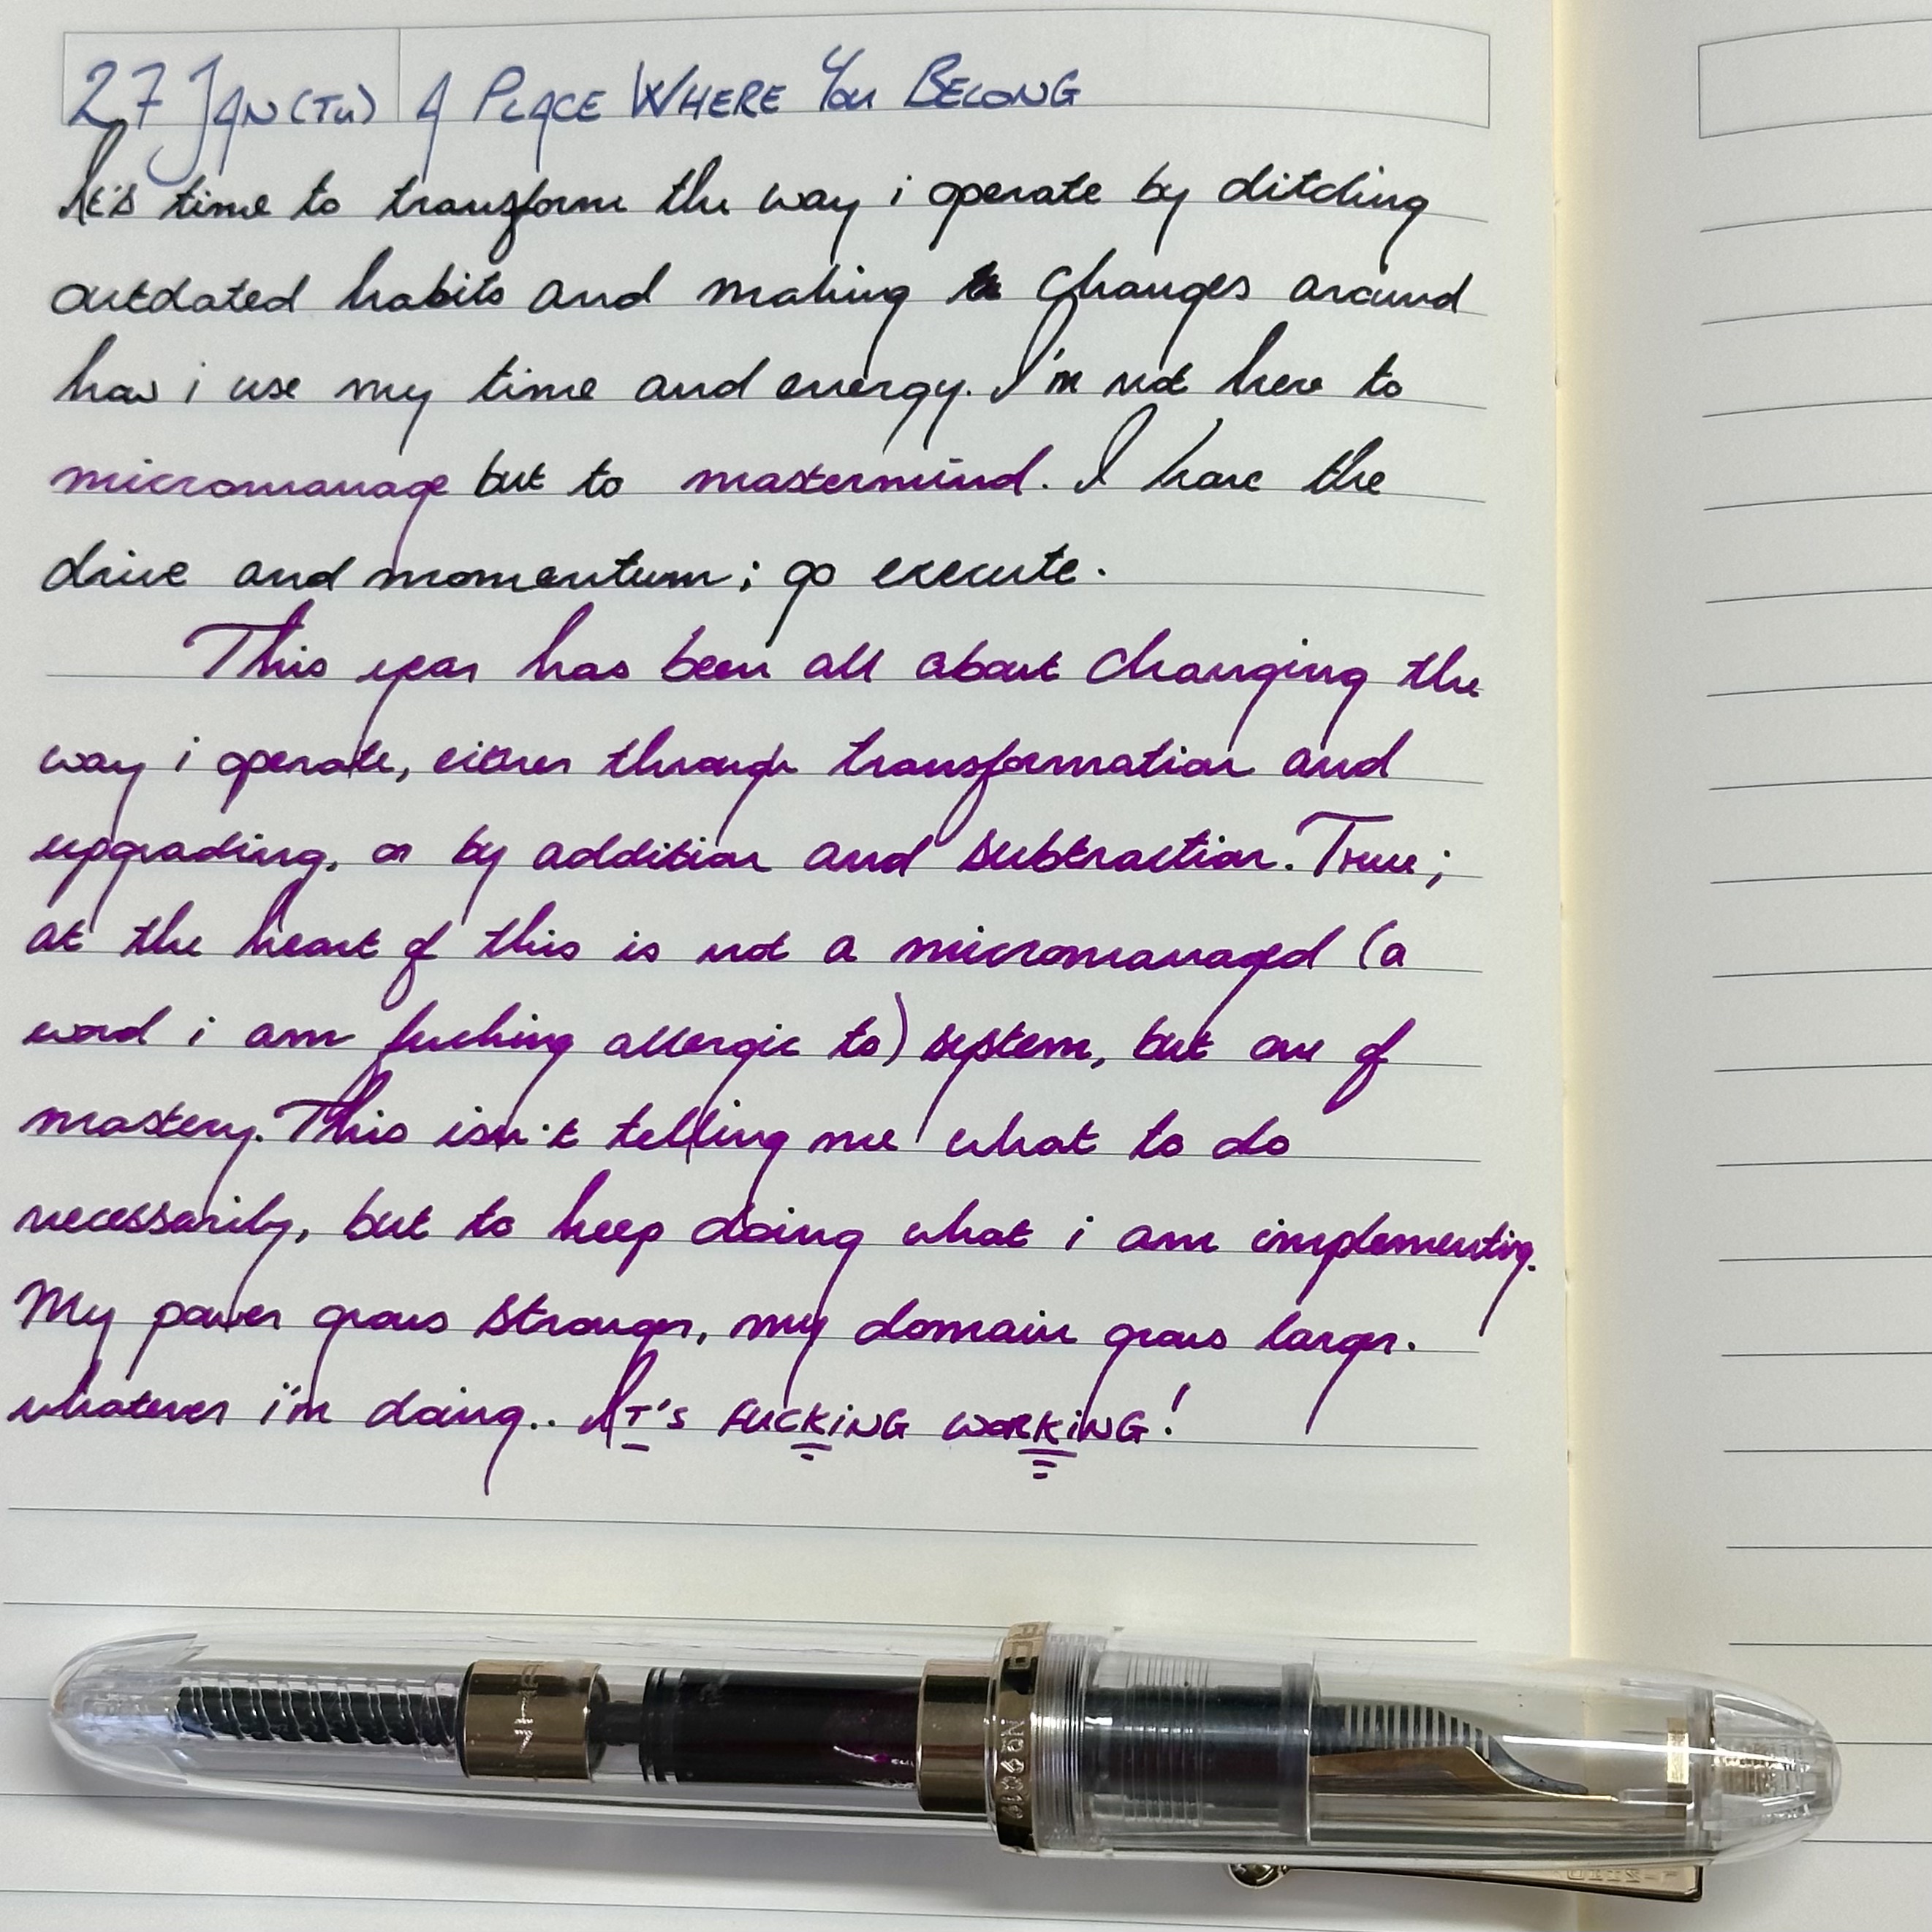 27 JAN (TU) A PLACE WHERE YOU BELONG
It's time to transform the way i operate by ditching
outdated habits and making changes around
how i use my time and energy. I'm not here to
micromanage but to mastermind. I have the
drive and momentum; go execute.
This year has been all about changing the
way i operate, either through transformation and
upgrading, or by addition and subtraction. True;
at the heart of this is not a micromanaged (a
word i am fucking allergic to) system, but one of
mastery. This isn't telling me what to do
necessarily, but to keep doing what i am implementing.
My power grows stronger, my domain grows larger.
whatever i'm doing.. IT'S FUCKING WORKING!